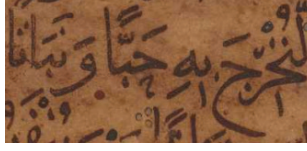 لِّنُخْرِجَ بِهِ حَبًّا وَنَبَاتًا